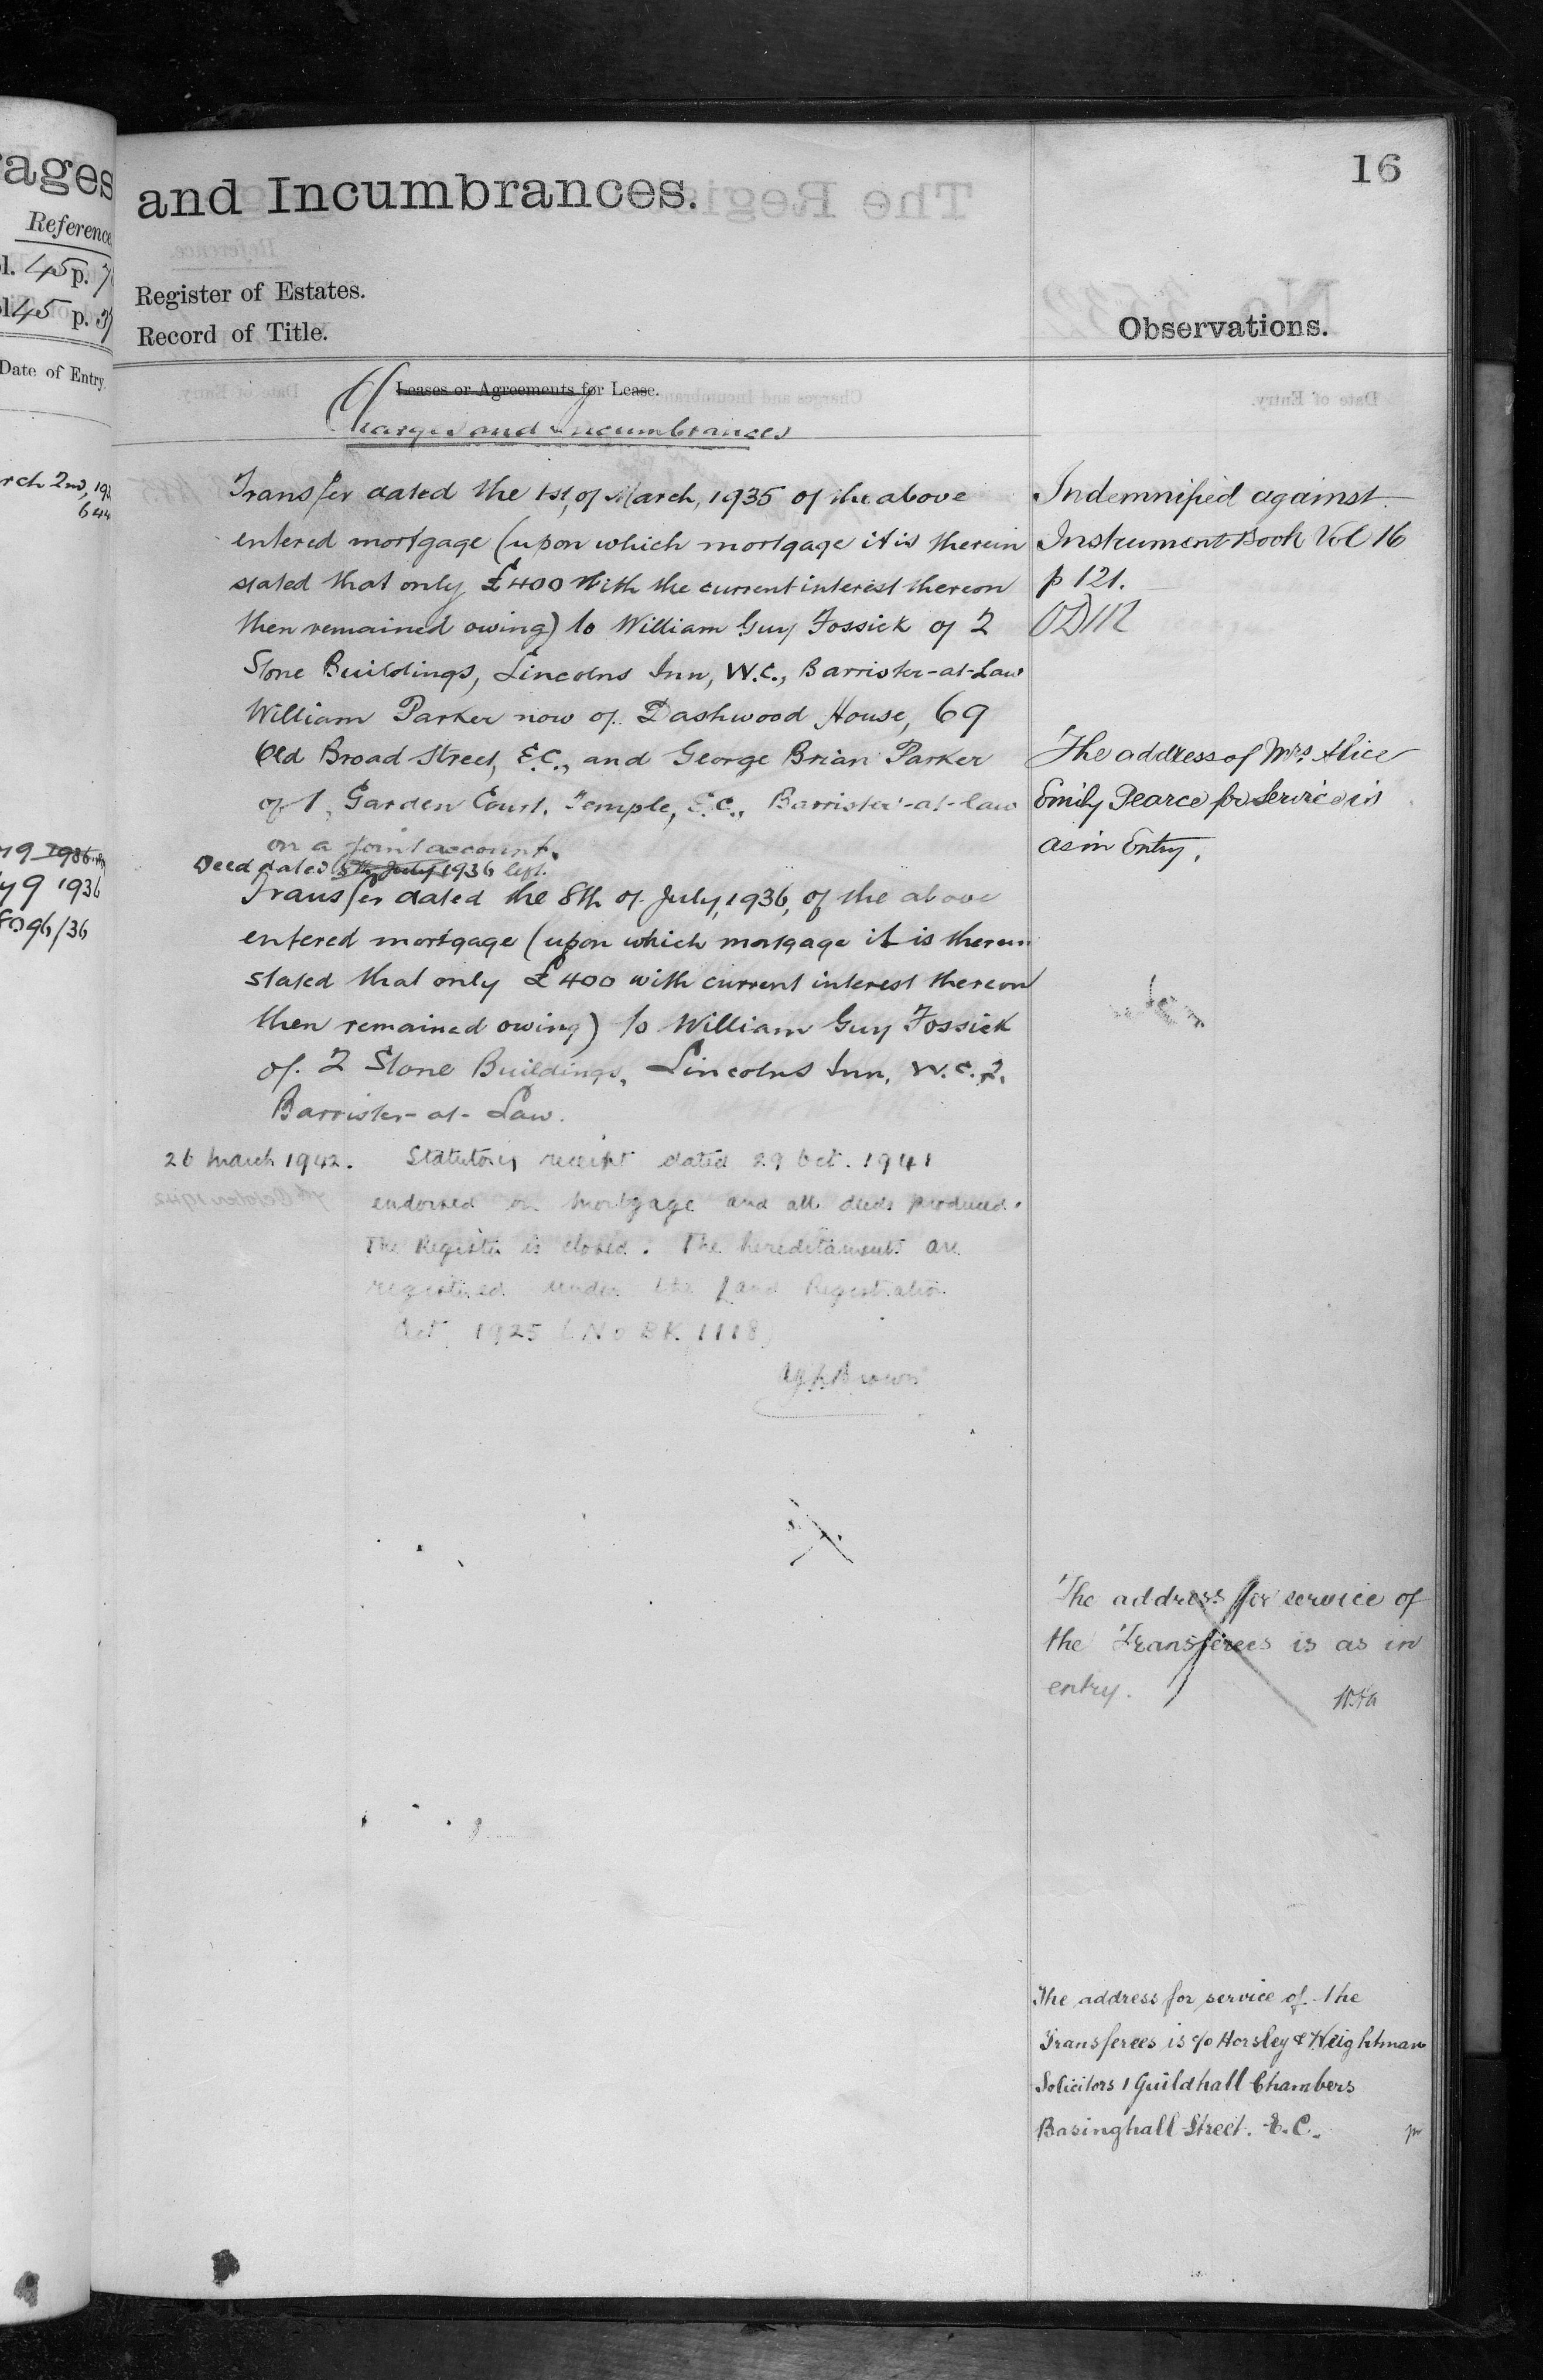 and Incumbrances.
16
Register of Estates.
Record of Title.
Observations.
Leases or Agreements for Lease.
Charges and Incumbrances
Transfer dated the 1st, of March, 1935 of the above
entered mortgage (upon which mortgage it is therein
stated that only £400 with the current interest thereon
then remained owing) to William Guy Fossick of 2
Stone Buildings, Lincolns Inn, W.C., Barrister-at-Law
William Parker now of Dashwood House, 69
Old Broad Street, E.C., and George Brian Parker
of 1, Garden Court, Temple, E.C., Barrister-at-law
on a joint account.
Deed dated 8th July 1936 left.
Transfer dated the 8th of July, 1936, of the above
entered mortgage (upon which mortgage it is therein
stated that only £400 with current interest thereon
then remained owing) to William Guy Fossick
of 2 Stone Buildings, Lincolns Inn, W.C.2,
Barrister-at-Law.
26 March 1942. Statutory receipt dated 29 Oct. 1941
endorsed on mortgage and all deeds produced.
The Register is closed. The hereditaments are
registered under the Land Registration
Act 1925 (No BK 1118)
Brown
Indemnified against
Instrument Book Vol 16
p 121.
The address of Mrs. Alice
Emily Pearce for Service is
as in Entry.
The address for service of
the Transferees is as in
entry.
The address for service of the
Transferees is c/o Horsley & Weightman
Solicitors 1 Guildhall Chambers
Basinghall Street. E.C.
ages
Reference
l. 45 p. 7
l 45 p. 3
Date of Entry.
rch 2nd, 193
644
y 9 1936
y 9 1936
8096/36